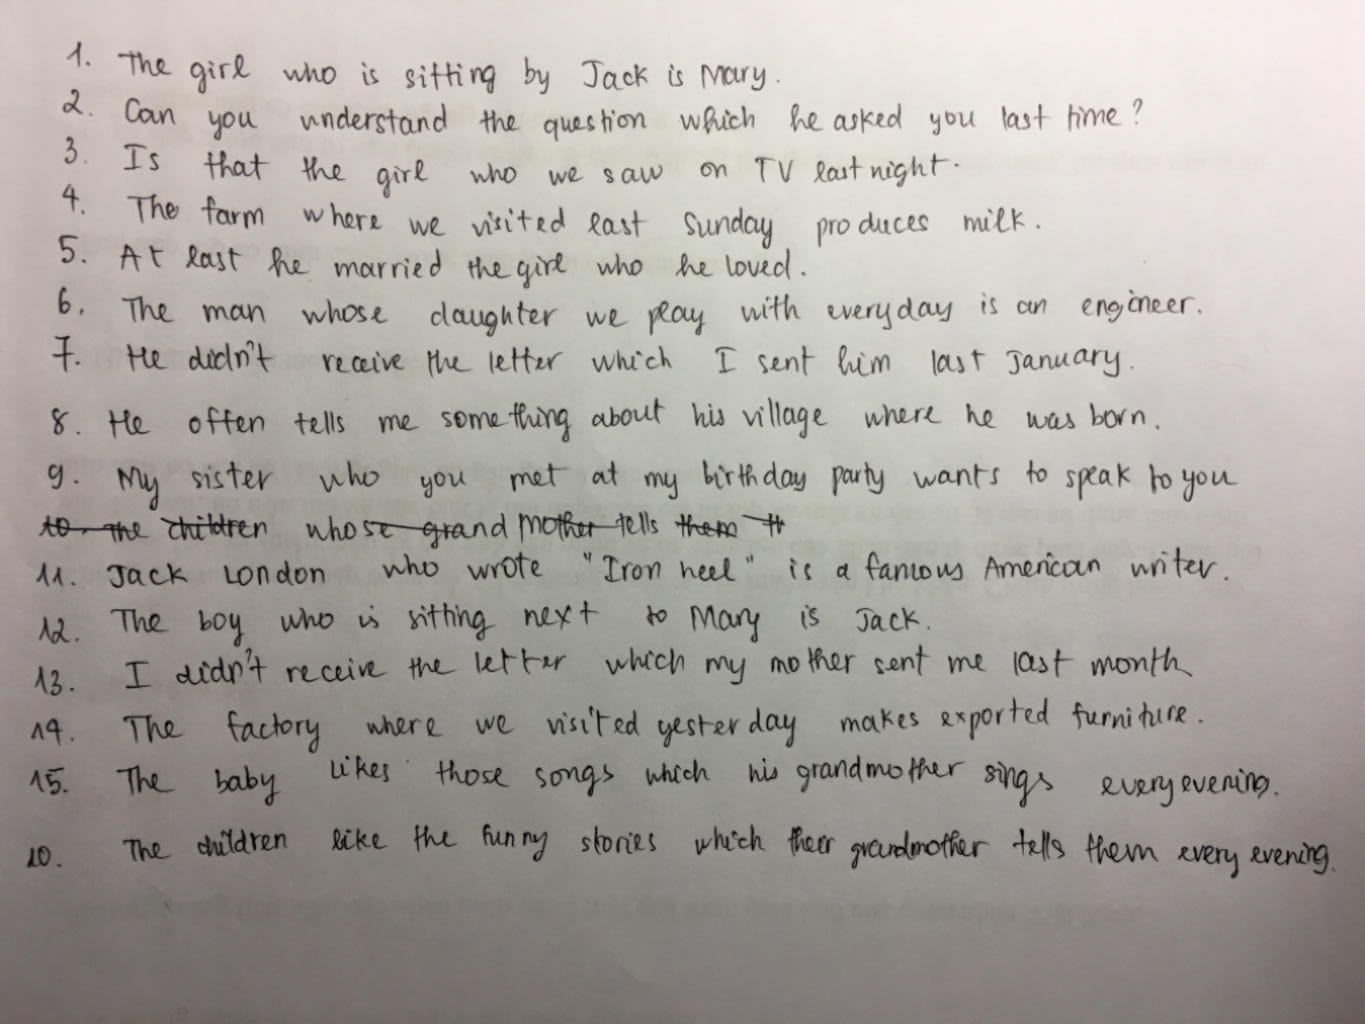 1. The girl who is sitting by Jack is Mary.
2. Can you understand the question which he asked you last time?
3. Is that the girl who we saw on TV last night.
4. The farm where we visited last Sunday produces milk.
5. At last he married the girl who he loved.
6. The man whose daughter we play with everyday is an engineer.
7. He didn't receive the letter which I sent him last January.
8. He offen tells me something about his village where he was born.
9. My sister who you met at my birthday party wants to speak to you
to the children whose grand mother tells them th
11. Jack London who wrote "Iron heel" is a famous American writer.
12. The boy who is sitting next to Mary is Jack.
13. I didn't receive the letter which my mother sent me last month
14. The factory where we visited yesterday makes exported furniture.
15. The baby likes those songs which his grandmother sings every evening.
10. The children like the funny stories which their grandmother tells them every evening.